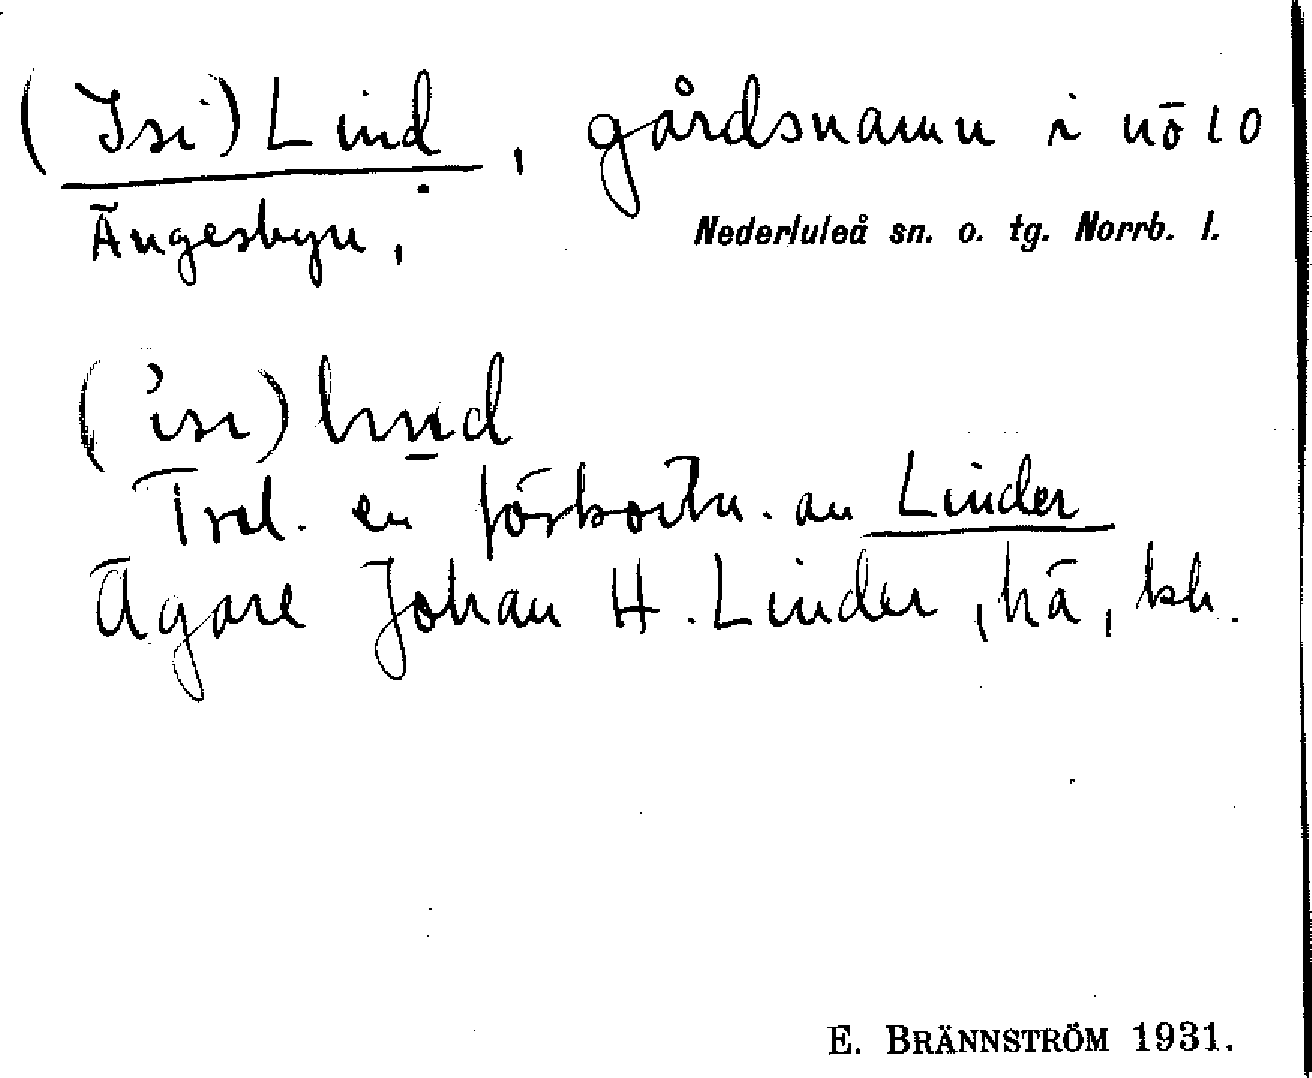 (Isi) Lind, gårdsnamn i nö 10
Ängesbyn,
Nederluleå sn. o. tg. Norrb. l.
('isi) lind
Trol. en förkortn. av Linder
Ägare Johan H. Linder, hä, bh.
E. BRÄNNSTRÖM 1931.